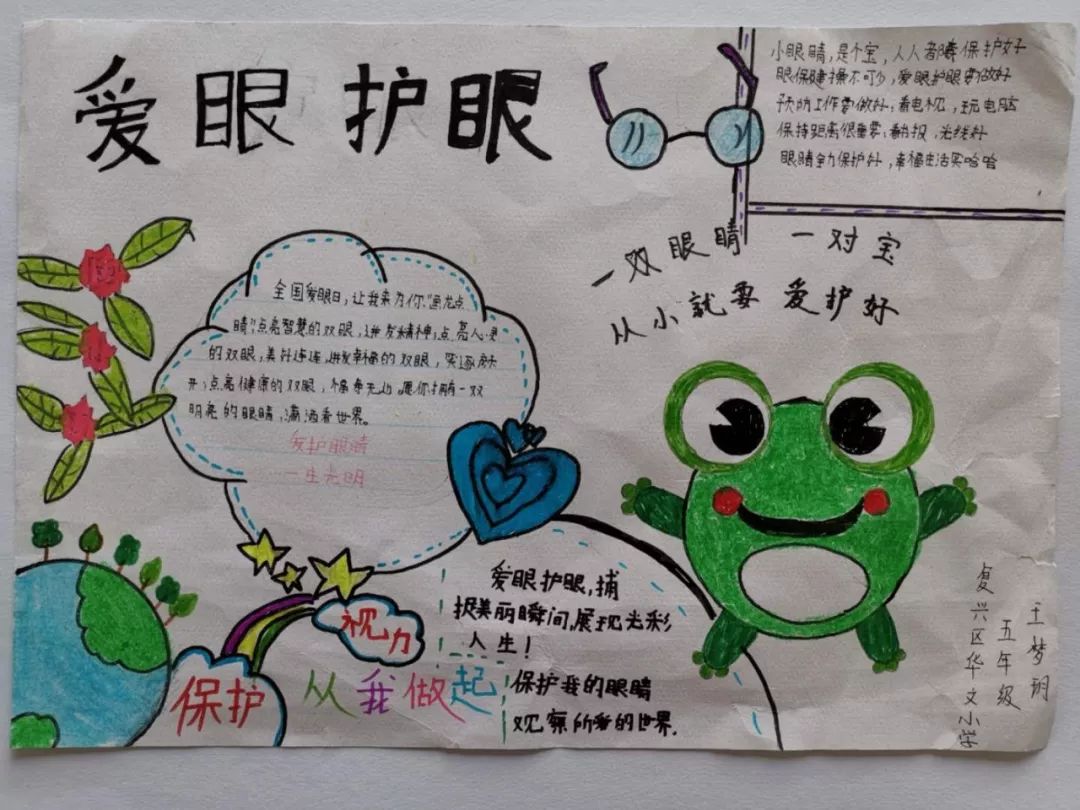 爱眼护眼
小眼睛，是个宝，人人都晓保护好
眼保健操不可少，爱眼护眼要做好
预防工作要做好；看电视，玩电脑
保持距离很重要；翻报，光线好
眼睛全力保护好，幸福生活笑哈哈
一双眼睛 一对宝
从小就要爱护好
全国爱眼日，让我来为你"画龙点
睛"：点亮智慧的双眼，迸发精神；点亮心灵
的双眼，美好连连，迸发幸福的双眼，笑逐颜
开；点亮健康的双眼，福寿无边，愿你拥有一双
明亮的眼睛，潇洒看世界。
爱护眼睛
一生光明
爱眼护眼，捕
捉美丽瞬间，展现光彩
人生！
视力
保护
从我做起
保护我的眼睛
观察所爱的世界.
复兴区华文小学
五年级
王梦玥